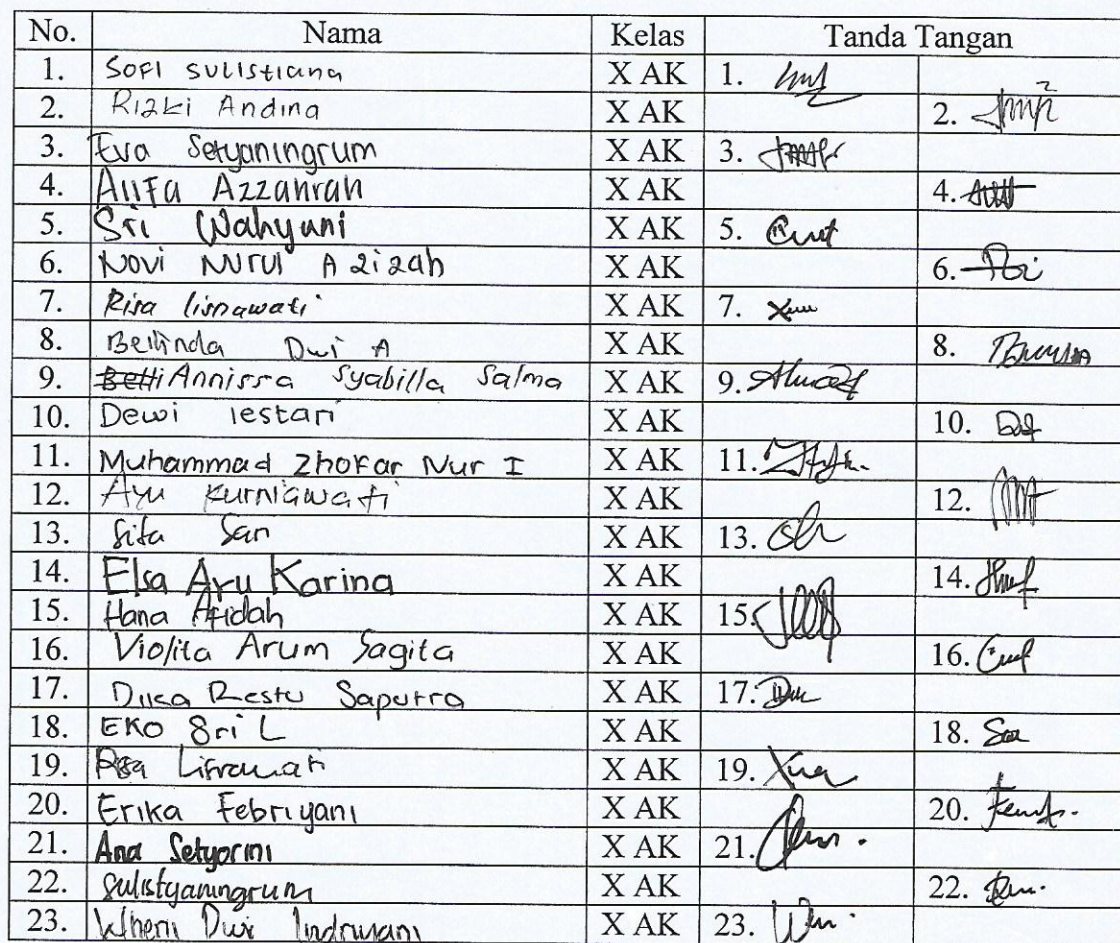 No. Nama Kelas Tanda Tangan
1. Sofi Sulistiana X AK 1.
2. Rizki Andina X AK 2.
3. Eva Setyaningrum X AK 3.
4. Alifa Azzahrah X AK 4.
5. Sri Wahyuni X AK 5.
6. Novi Nurul Azizah X AK 6.
7. Risa lisnawati X AK 7.
8. Bellinda Dwi A X AK 8.
9. Annissa Syabilla Salma X AK 9.
10. Dewi lestari X AK 10.
11. Muhammad Zhofar Nur I X AK 11.
12. Ayu Kurniawati X AK 12.
13. Sita Sari X AK 13.
14. Elsa Ayu Karina X AK 14.
15. Hana Afidah X AK 15.
16. Violita Arum Sagita X AK 16.
17. Restu Saputra X AK 17.
18. EKO Sri L X AK 18.
19. X AK 19.
20. Erika Febriyani X AK 20.
21. Ana Setyorini X AK 21.
22. Sulistyaningrum X AK 22.
23. Dwi Indriyani X AK 23.